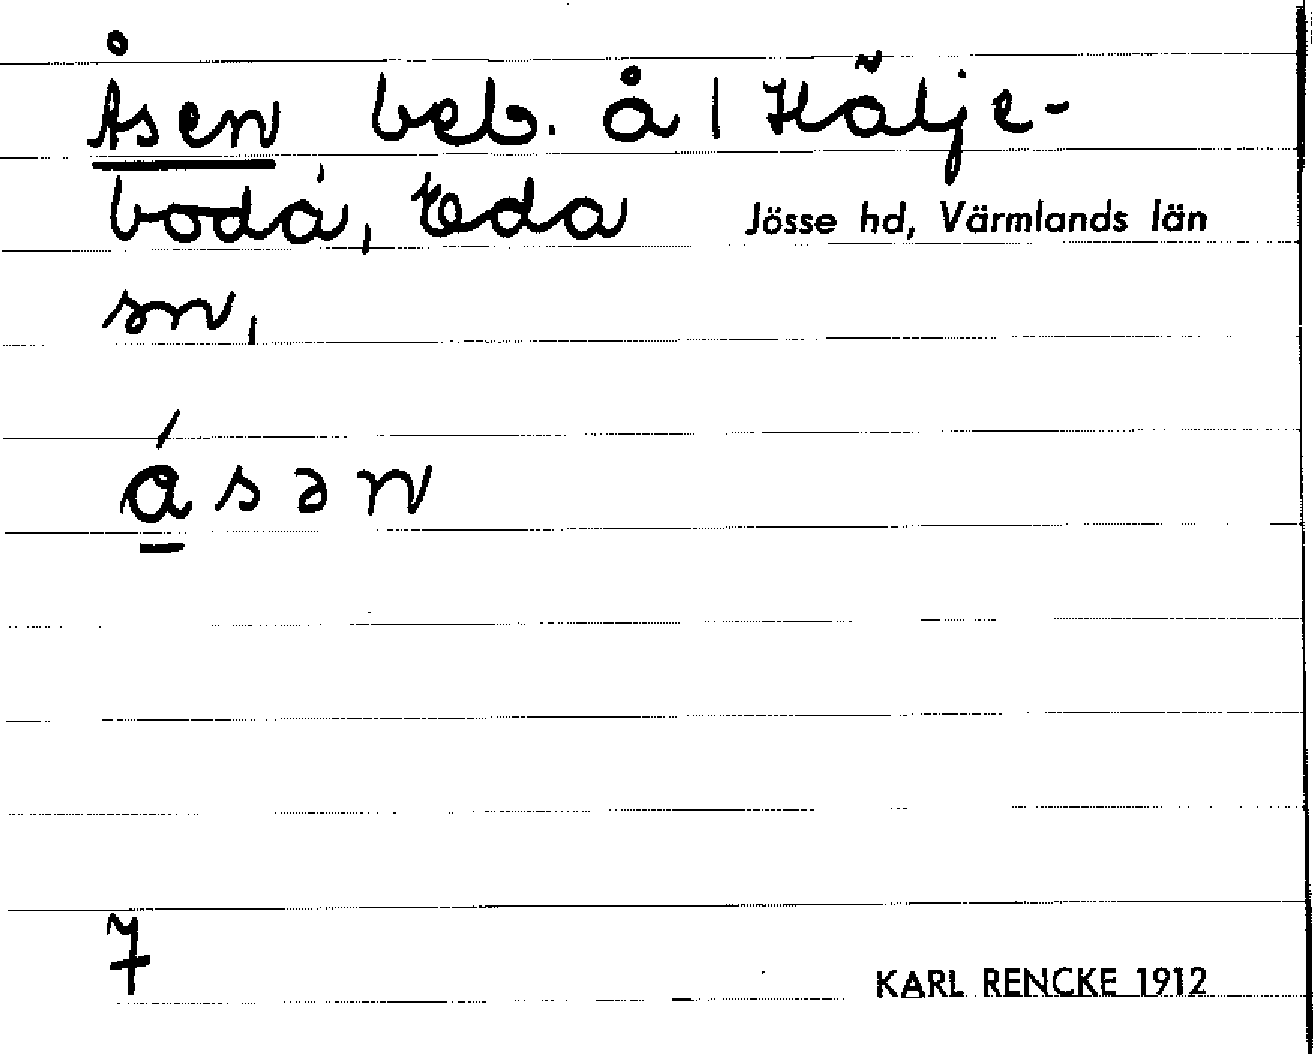 Åsen beb. å 1 Hälje-
boda, Eda Jösse hd, Värmlands län
sn,
ásən
7
KARL RENCKE 1912